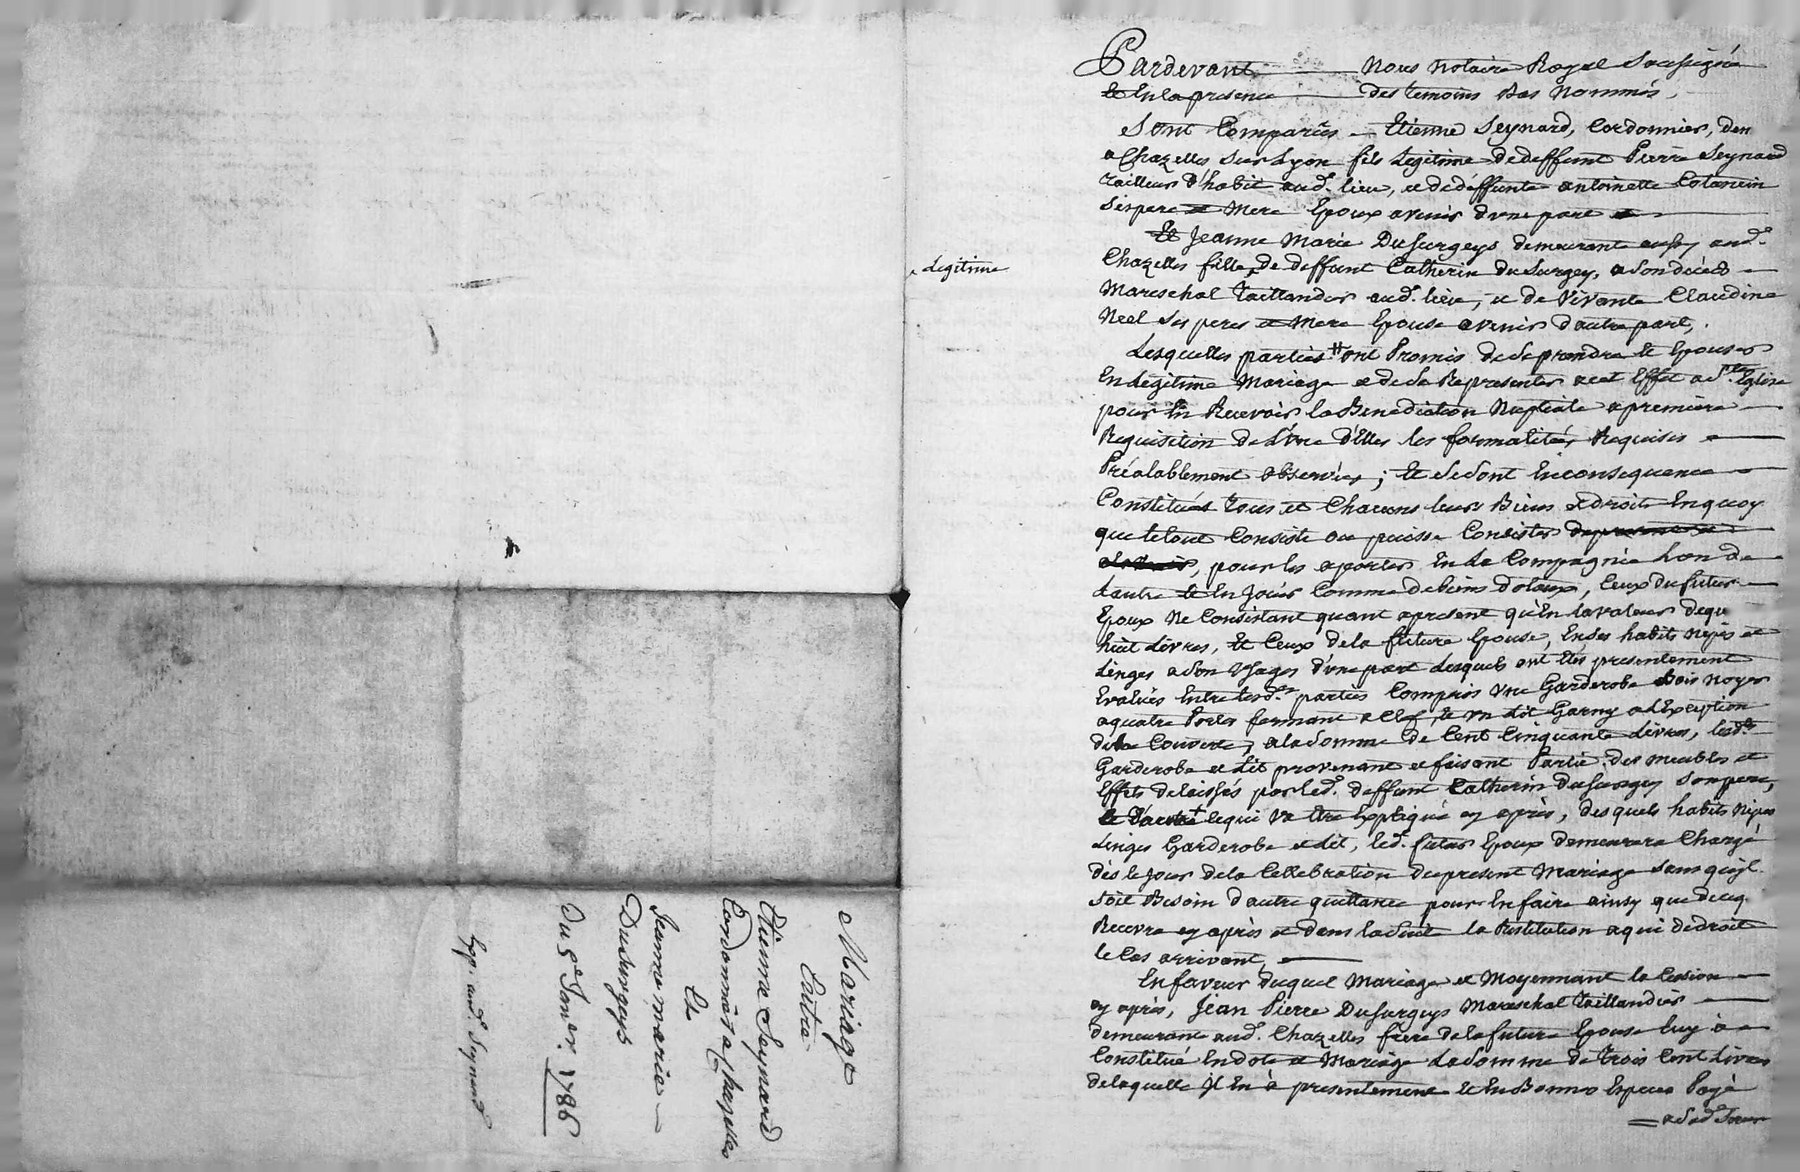 Mariage
Entre
Etienne Seynard
Cordonnier a Chazelles
Et
Jeanne marie
Dusurgeys
Du 5e Janer. 1786
Exp. aud Seynard
Legitime
Pardevant Nous Notaire Royal Soussigné
et En la presence des temoins Bas Nommés,
Sont Comparûs Etienne Seynard, Cordonnier, dem
a Chazelles sur Lyon fils Legitime de deffunt Pierre Seynard
tailleur d'habit aud. lieu, et de deffunte antoinette
Ses pere et Mere Epoux avenir d'une part
Et Jeanne Marie Dusurgeys demeurante aussy aud.
Chazelles fille de deffunt Catherin Dusurgey, a son décéd
Mareschal taillandier aud. lieu, et de vivante Claudine
Neel ses peres et Mere Epouse avenir d'autre part,
Lesquelles parties ont Promis de se prendre et Epouser
En Légitime Mariage et de se Representer a cet Effet a Ste. Eglise
pour En Recevoir la Benediction Nuptiale a premiere
Requisition de L'une d'Elles les formalités Requises
Préalablement observées; et se sont En consequence
Constitués tous et Chacuns leurs Biens et droits En quoy
que le tout Consiste ou puisse Consister
pour les aporter En la Compagnie L'un de
Lautre et En Jouir Comme de biens dotaux, Ceux du futur
Epoux Ne Consistant quant apresent qu'En la valeur de
huit Livres, et Ceux de la future Epouse, En ses habits Nipes et
Linges a son Usages d'une part Lesquels ont Etés presentement
Evalués Entre lesd. parties Compris une Garderobe Bois Noyer
a quatre Portes fermant a Clef, et un Lit Garny a L'Exception
de la Couverte, a la Somme de Cent Cinquante Livres, lesd.
Garderobe et Lit provenant et faisant Partie des meubles et
Effets delaissés par led. deffunt Catherin Dusurgey Son pere,
et D'autre le qui va Etre Expliqué cy après, des quels habits Nipes
Linges Garderobe et Lit, led. futur Epoux demeurera Chargé
dès le Jour de la Cellebration du present Mariage sans qu'il
soit Besoin d'autre quittance pour En faire ainsy que de
Recevra cy après et dans la suite la Restitution a qui de droit
le Cas arrivant,
En faveur du quel Mariage et Moyennant la Cession
cy après, Jean Pierre Dusurgeys Mareschal taillandier
demeurant aud. Chazelles frere de la future Epouse luy à
Constitué En dot et Mariage La Somme de trois Cent Livres
de laquelle Il En à presentement et En Bonnes Especes Payé
a sad. Soeur